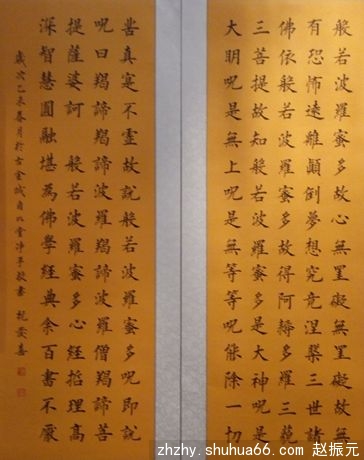 般若波羅蜜多故心無罣礙無罣礙故無
有恐怖遠離顛倒夢想究竟涅槃三世諸
佛依般若波羅蜜多故得阿耨多羅三藐
三菩提故知般若波羅蜜多是大神呪是
大明呪是無上呪是無等等呪能除一切
苦真寔不虛故說般若波羅蜜多呪即說
呪曰羯諦羯諦波羅羯諦波羅僧羯諦菩
提薩婆訶 般若波羅蜜多心經哲理高
深智慧圓融堪為佛學經典余百書不厭
歲次乙未春月於古金城
zhzhy.shuhua66.com 赵振元